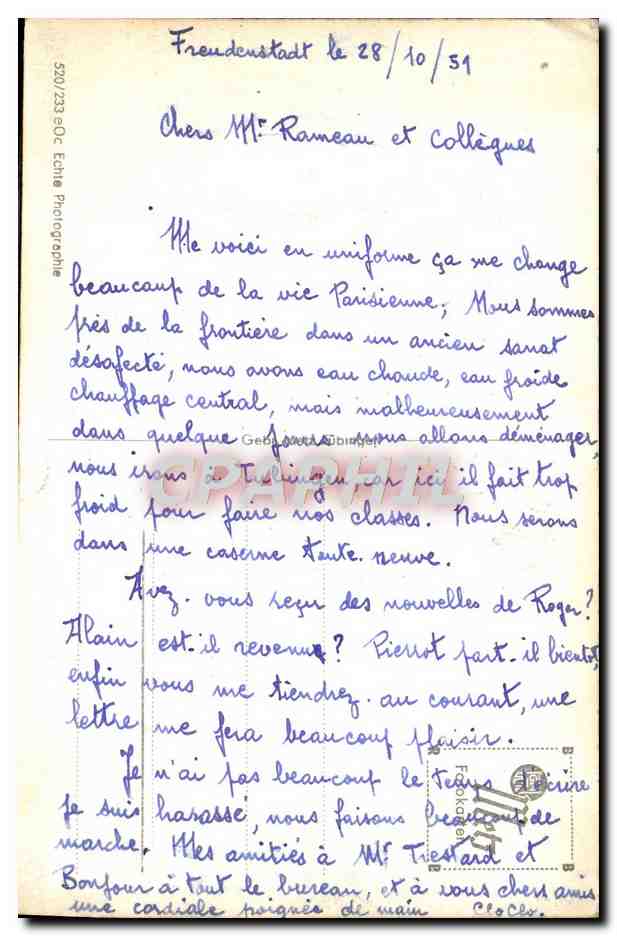 Freudenstadt le 28/10/51
Chers Mr Rameau et Collègues
Me voici en uniforme ça me change
beaucoup de la vie Parisienne, Nous sommes
près de la frontière dans un ancien sanat
désafecté, nous avons eau chaude, eau froide
chauffage central, mais malheureusement
dans quelque jours nous allons déménager,
nous irons à Tubingen car ici il fait trop
froid pour faire nos classes. Nous serons
dans une caserne toute neuve.
Avez-vous reçu des nouvelles de Roger?
Alain est-il revenu? Pierrot part-il bientôt,
enfin vous me tiendrez au courant, une
lettre me fera beaucoup plaisir.
Je n'ai pas beaucoup le temps d'écrire
je suis harassé, nous faisons beaucoup de
marche. Mes amitiés à Mr Trestard et
Bonjour à tout le bureau, et à vous chers amis
une cordiale poignée de main CloClo.
520/233 eOc Echte Photographie
Gebr. Metz, Tübingen
CPARPHIL
Metz
Fotokarten